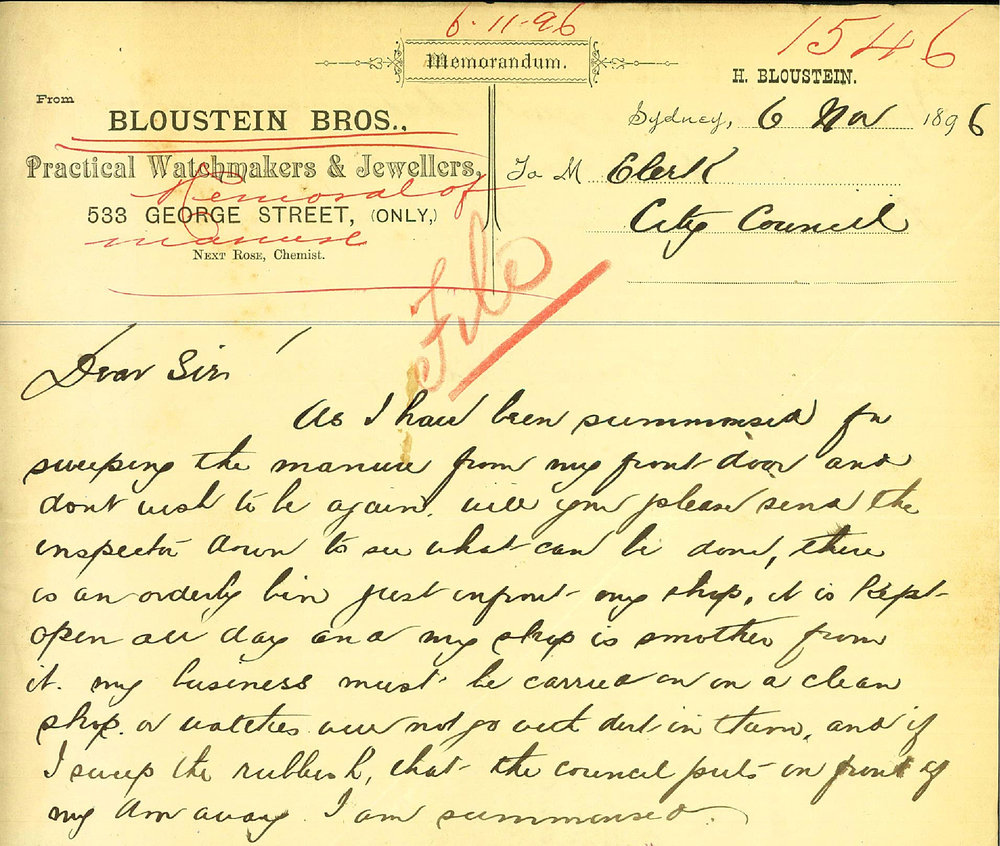 6.11.96
1546
Memorandum.
H. BLOUSTEIN.
From
BLOUSTEIN BROS.,
Sydney, 6 Nov 1896
Practical Watchmakers & Jewellers,
To M Clerk
Removal of
533 GEORGE STREET, (ONLY,)
City Council
manure
NEXT ROSE, Chemist.
File
Dear Sir
As I have been summonsed for
sweeping the manure from my front door and
dont wish to be again. will you please send the
inspector down to see what can be done, there
is an orderly bin just infront my shop, it is kept
open all day and my shop is smother from
it. my business must be carried on in a clean
shop. or watches will not go with dirt in them, and if
I sweep the rubbish, that the council puts in front of
my door away I am summonsed.